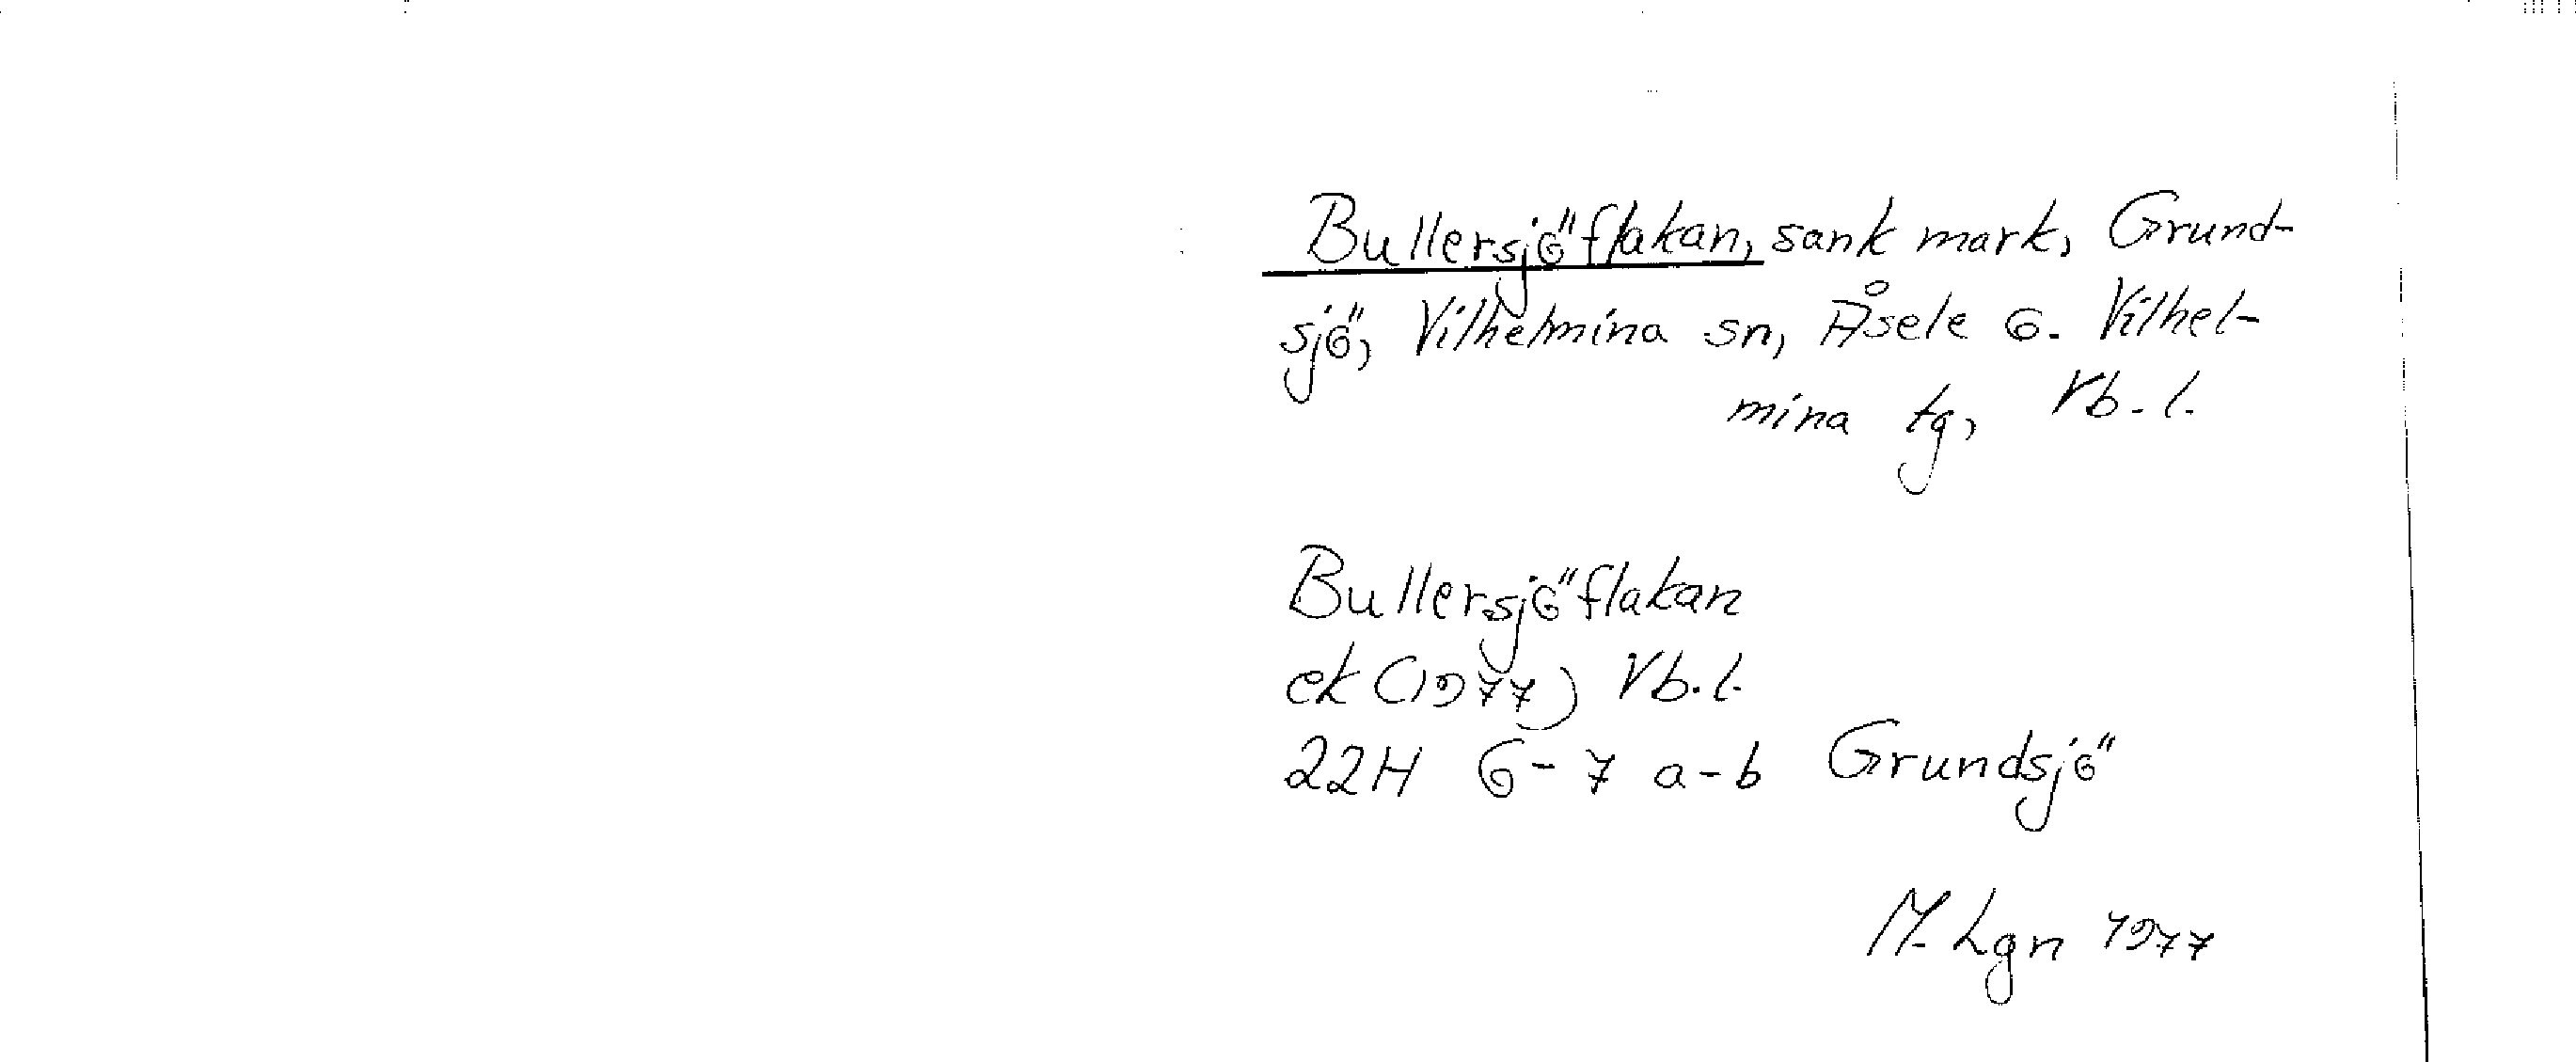 Bullersjöflakan, sank mark, Grund-
sjö, Vilhelmina sn, Åsele o. Vilhel-
mina tg, Vb. l.
Bullersjöflakan
ek (1977) Vb. l.
22H 6-7 a-b Grundsjö
M. Lgn 1977